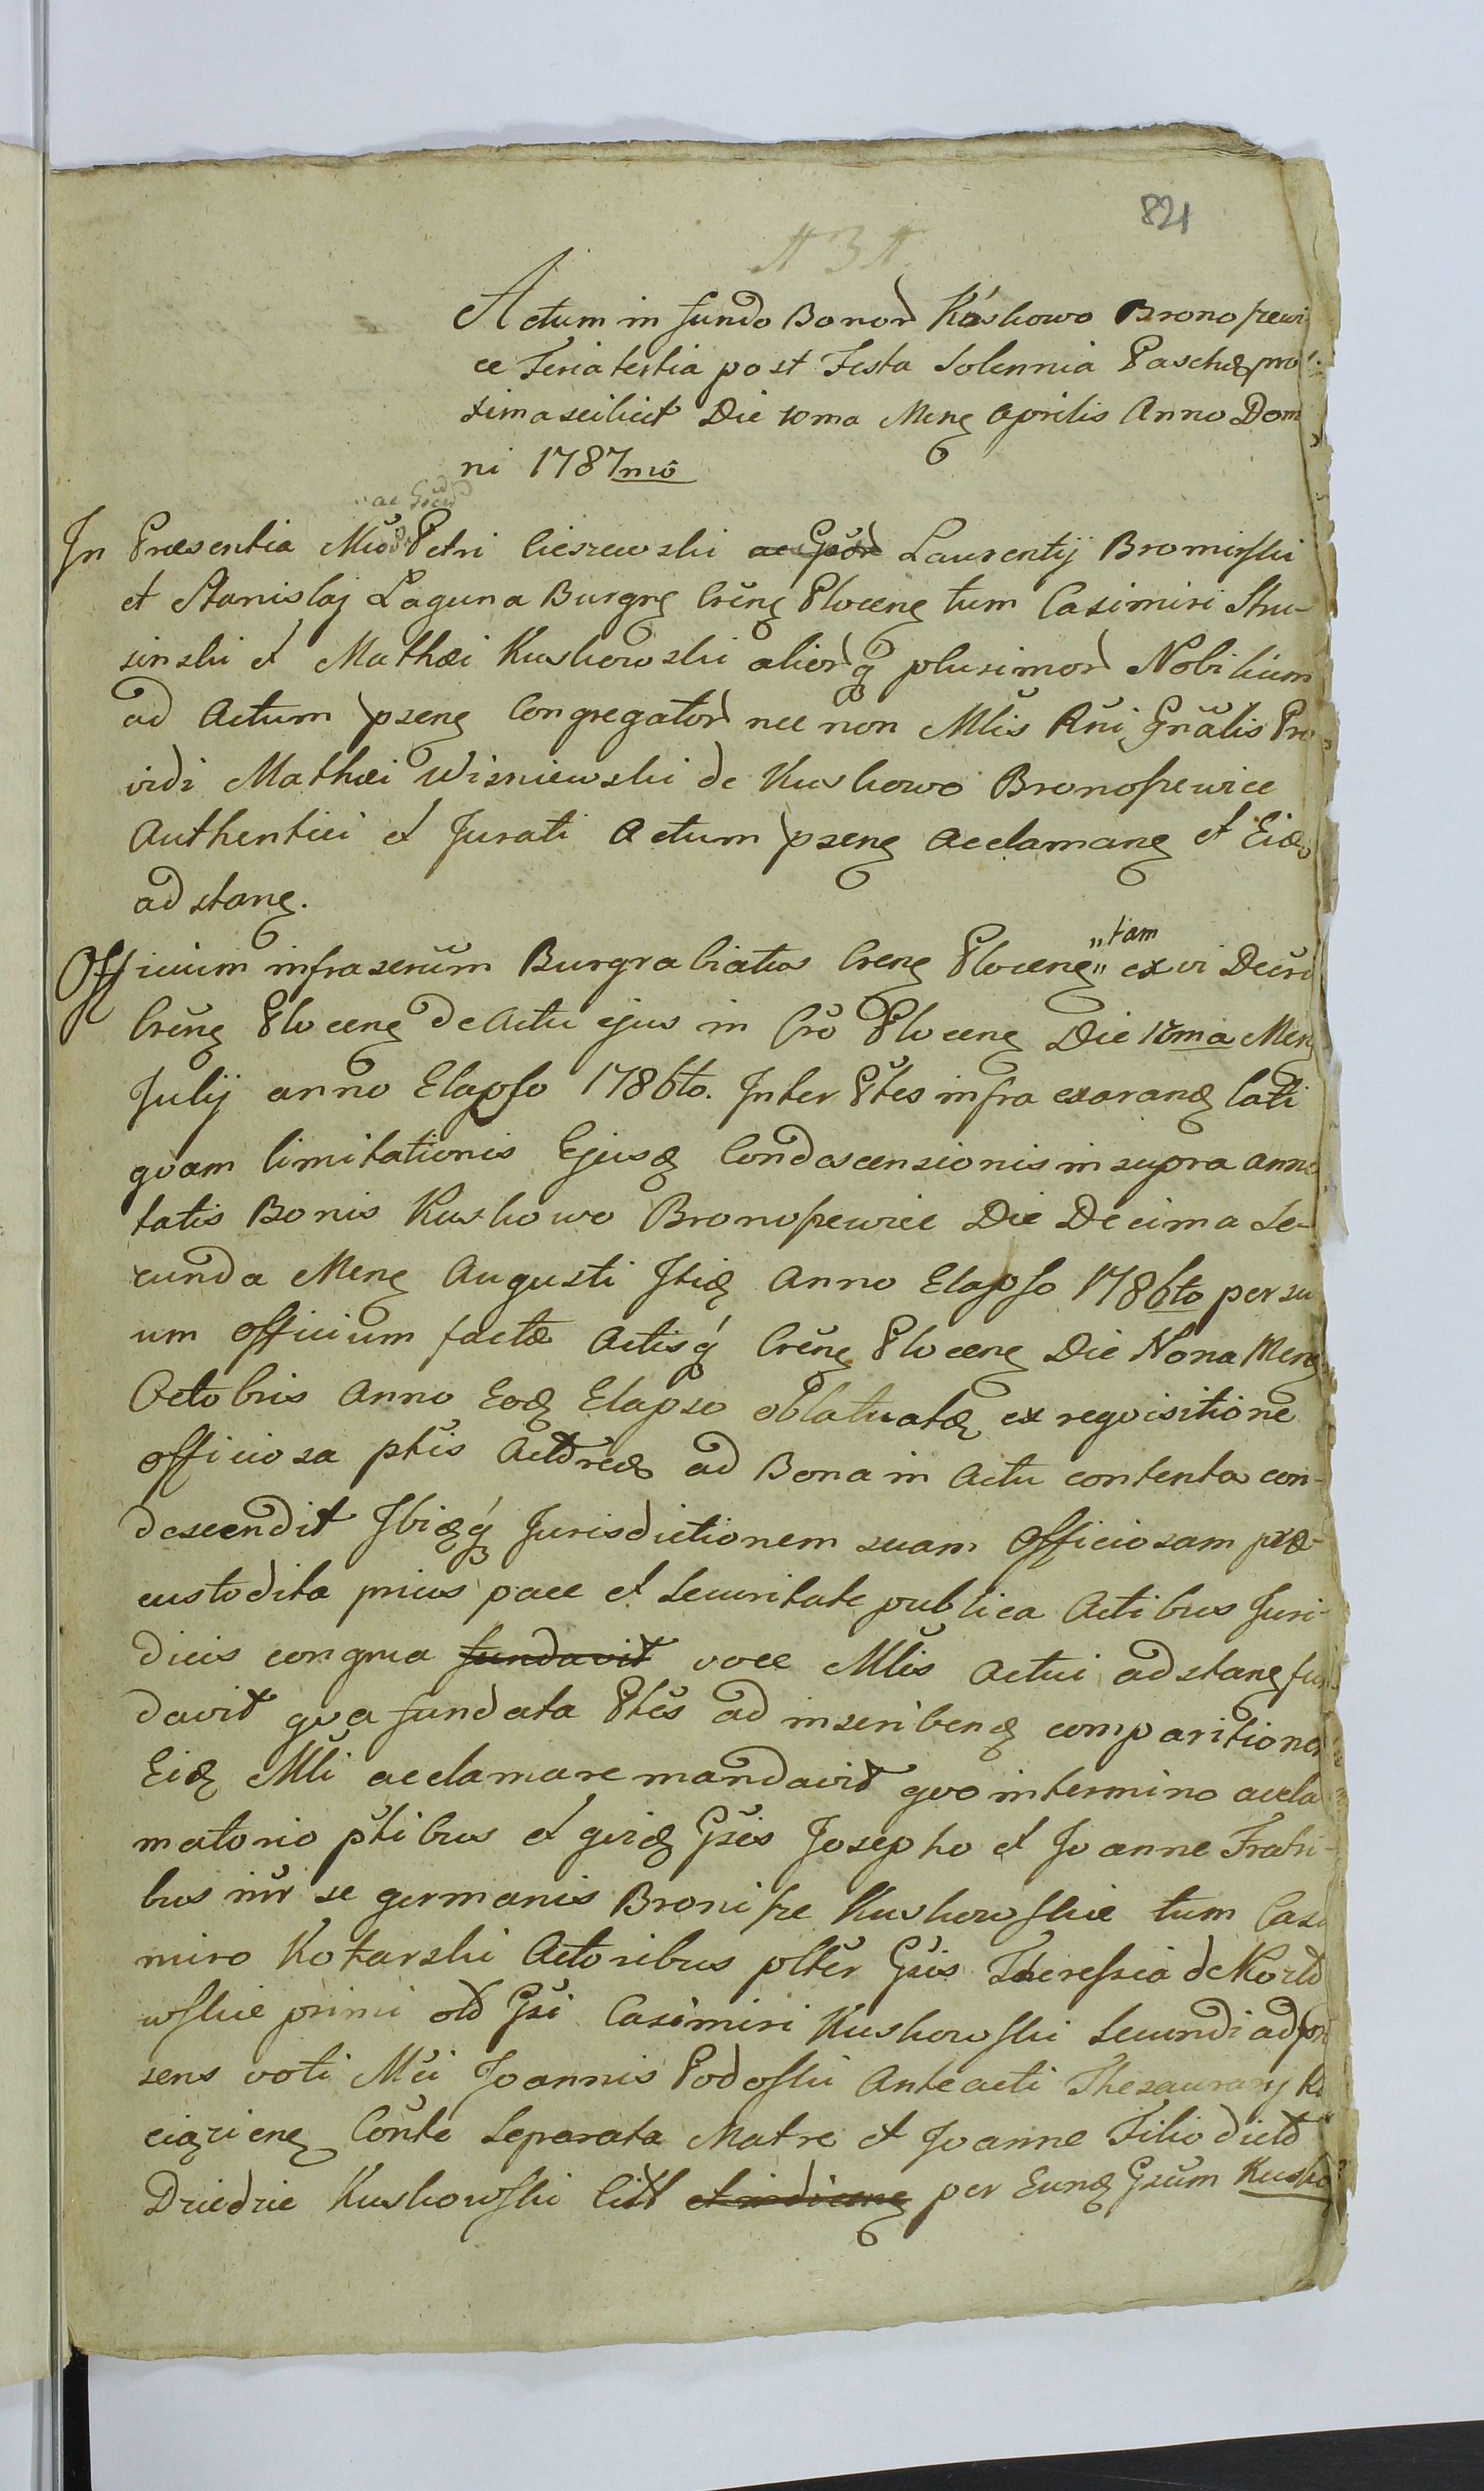 821
Actum in fundo Bonor Kuskowo Bronopewi
ce Feria tertia post Festa Solennia Paschæ pro
xima scilicet Die 10ma Mens Aprilis Anno Dom
ni 1787mo
In Præsentia Petri Cieszewski ac Gsor Laurentij Bromirski
et Stanislaj Laguna Burgrs Crens Plocens tum Casimiri Stru-
sinski et Mathæi Kuskowski aliorq plurimor Nobilium
ad Actum psens Congregator nec non Mlis Rni Gnalis Pro
vidi Mathæi Wisniewski de Kuskowo Bronopewice
Authentici et Jurati Actum psens acclamans et Eid
adstans.
Officium infrascrum Burgrabiatus Crens Plocens „tam ex vi Decri
Crens Plocens de Actu ejus in Cro Plocens Die 18ma Mens
Julij anno Elapso 1786to. Inter Ptes infra exarand lati
qvam limitationis Ejusd Condescensionis in supra anno
tatis Bonis Kuskowo Bronopewice Die Decima Se-
cunda Mens Augusti Ibid Anno Elapso 1786to per su
um officium factæ Actisq Crens Plocens Die Nona Mens
Octobris Anno Eod Elapso oblatuatæ ex reqvisitione
officiosa ptis Actoreæ ad Bona in Actu contenta con-
descendit Ibidq Jurisdictionem suam Officiosam præ-
custodita prius pace et Securitate publica Actibus Juri-
dicis congrua fundavit voce Mlis Actui adstans fun
davit qva fundata Ptes ad inscribend comparitionem
Eid Mli acclamare mandavit qvo in termino accla
matorio ptibus et qvid Gsis Josepho et Joanne Fratri-
bus inr se germanis Bronisze Kuskowskie tum Casi
miro Kotarski Actoribus plter Gsis Theressia de
wskie primi old Gsi Casimiri Kuskowski Secundi ad præ
sens voti Mci Joannis Podoski Anteacti Thesaurarij Ra
ciąziens Conte Separata Matre et Joanne Filio dict
Dziedzic Kuskowski Citt et indicens per Eund Gsum Kusko